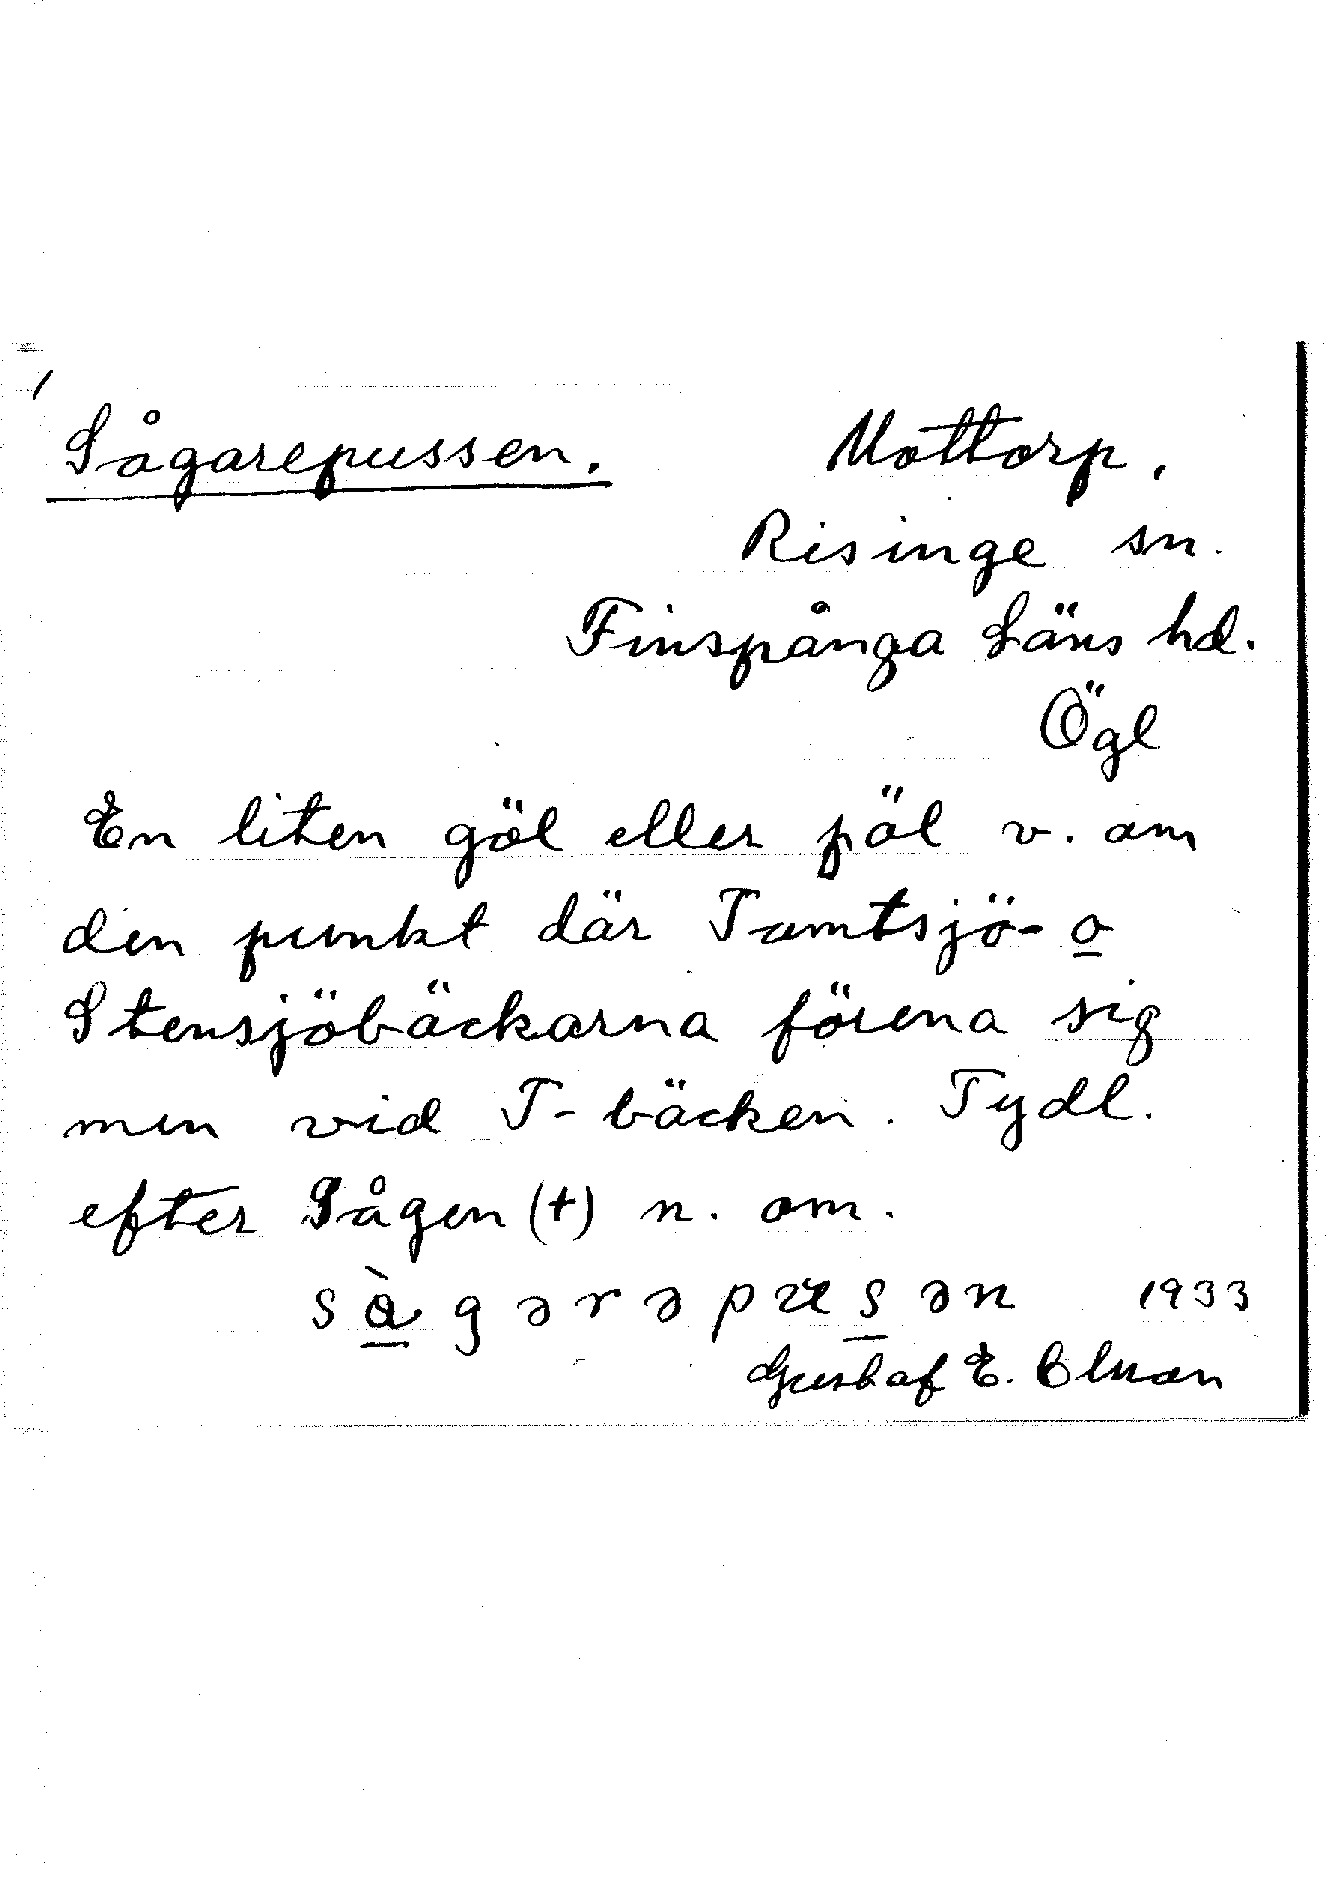 Sågarepussen. Mottorp.
Risinge sn.
Finspånga Läns hd.
Ögl
En liten göl eller pöl v. om
den punkt där Tomtsjö- o
Stensjöbäckarna förena sig
men vid T-bäcken. Tydl.
efter Sågen (+) n. om.
sàgərəpusən 1933
Gustaf E.